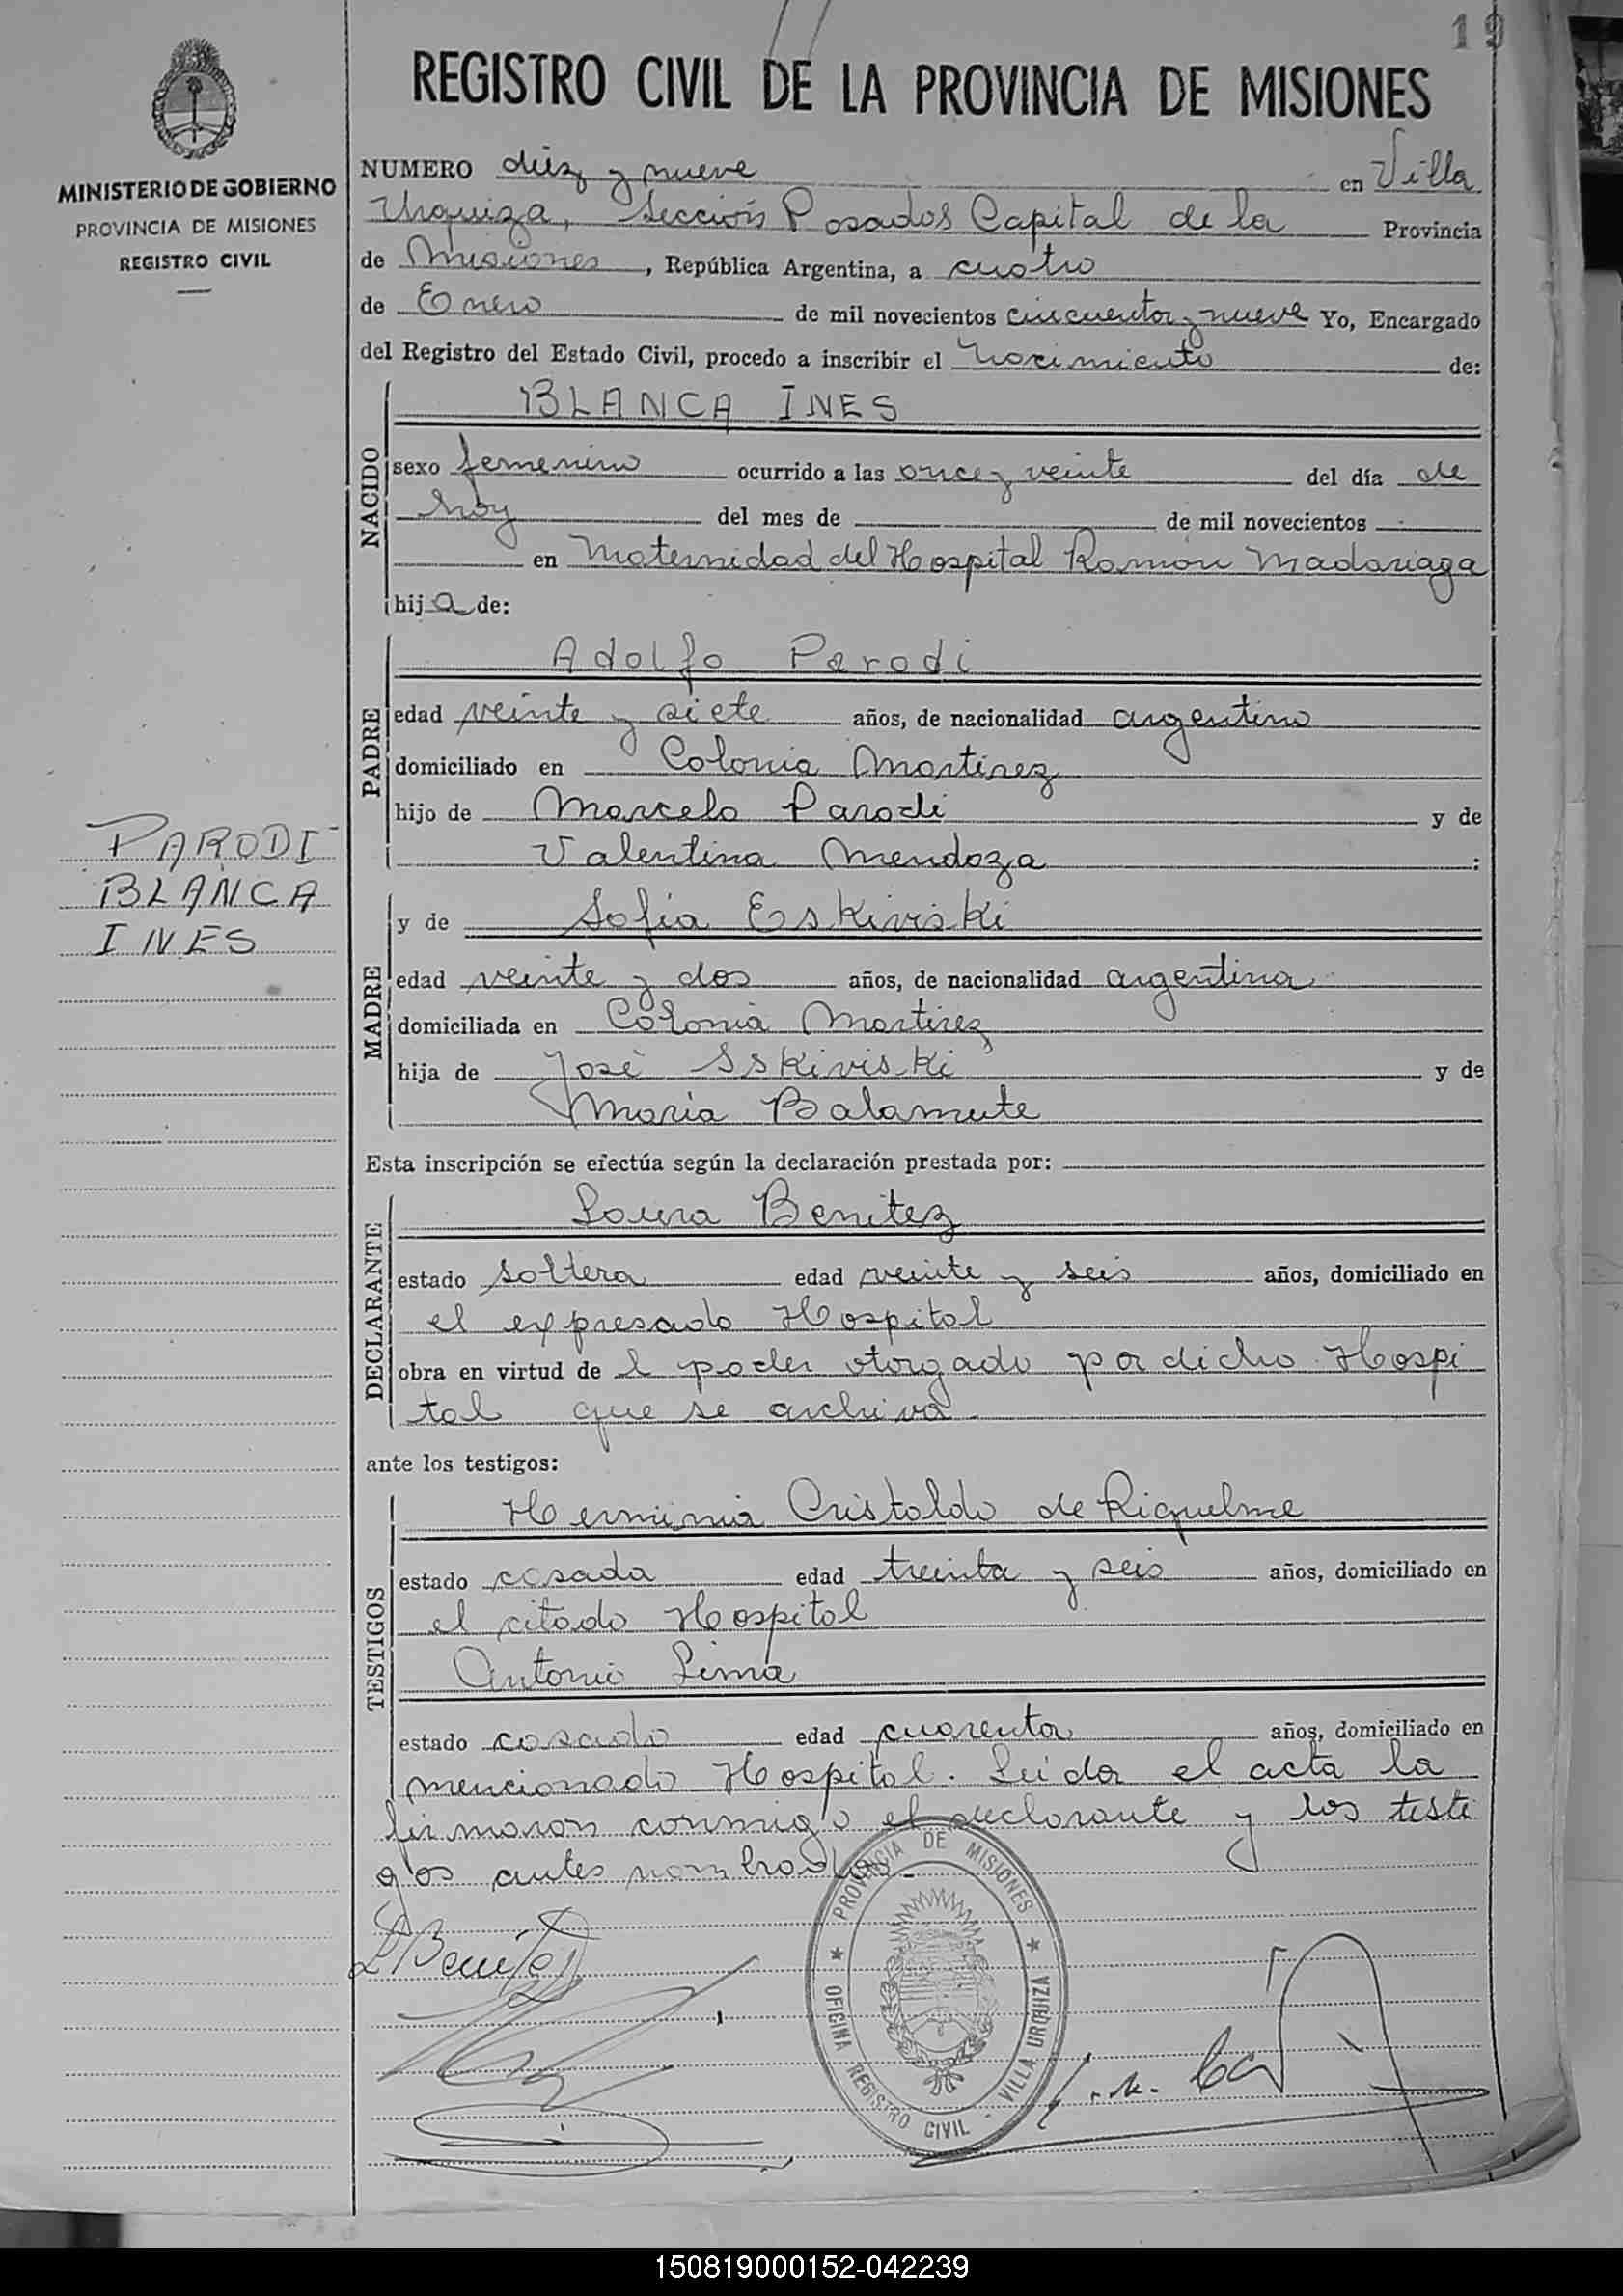 19
REGISTRO CIVIL DE LA PROVINCIA DE MISIONES
MINISTERIO DE GOBIERNO
PROVINCIA DE MISIONES
REGISTRO CIVIL
NUMERO diez y nueve en Villa
Urquiza, Sección Posadas Capital de la Provincia
de Misiones, República Argentina, a cuatro
de Enero de mil novecientos cincuenta y nueve Yo, Encargado
del Registro del Estado Civil, procedo a inscribir el nacimiento de:
NACIDO
BLANCA INES
sexo femenino ocurrido a las once y veinte del día de
hoy del mes de de mil novecientos
en Maternidad del Hospital Ramón Madariaga
hija de:
PADRE
Adolfo Parodi
edad veinte y siete años, de nacionalidad argentino
domiciliado en Colonia Martirez
hijo de Marcelo Parodi y de
Valentina Mendoza :
PARODI
BLANCA
INES
MADRE
y de Sofia Eskiviski
edad veinte y dos años, de nacionalidad argentina
domiciliada en Colonia Martirez
hija de José Sskiviski y de
Maria Balamute
Esta inscripción se efectúa según la declaración prestada por:
DECLARANTE
Laura Benitez
estado soltera edad veinte y seis años, domiciliado en
el expresado Hospital
obra en virtud de l poder otorgado por dicho Hospi
tal que se archiva
ante los testigos:
TESTIGOS
Herminia Cristaldo de Riquelme
estado casada edad treinta y seis años, domiciliado en
el citado Hospital
Antonio Lima
estado casado edad cuarenta años, domiciliado en
mencionado Hospital. Leída el acta la
firmaron conmigo el declarante y los testi
gos antes nombrados.
L Benitez
PROVINCIA DE MISIONES
OFICINA REGISTRO CIVIL - VILLA URQUIZA
150819000152-042239